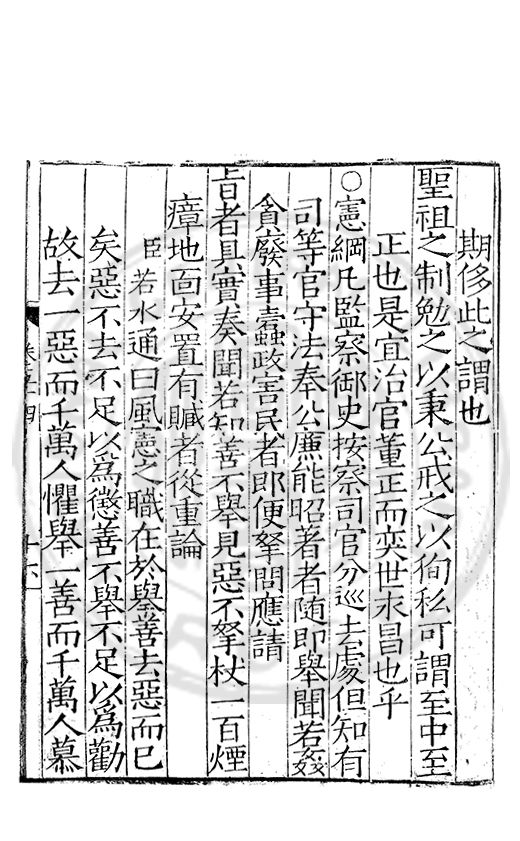 期侈此之謂也
聖祖之制勉之以秉公戒之以徇私可謂至中至
正也是宜治官董正而奕世永昌也乎
○憲綱凡監察御史按察司官分巡去處但知有
司等官守法奉公廉能昭著者隨即舉聞若姦
貪廢事蠹政害民者即便拏問應請
旨者具實奏聞若知善不舉見惡不拏杖一百煙
瘴地面安置有贓者從重論
臣若水通曰風憲之職在於舉善去惡而已
矣惡不去不足以為懲善不舉不足以為勸
故去一惡而千萬人懼舉一善而千萬人慕
十六